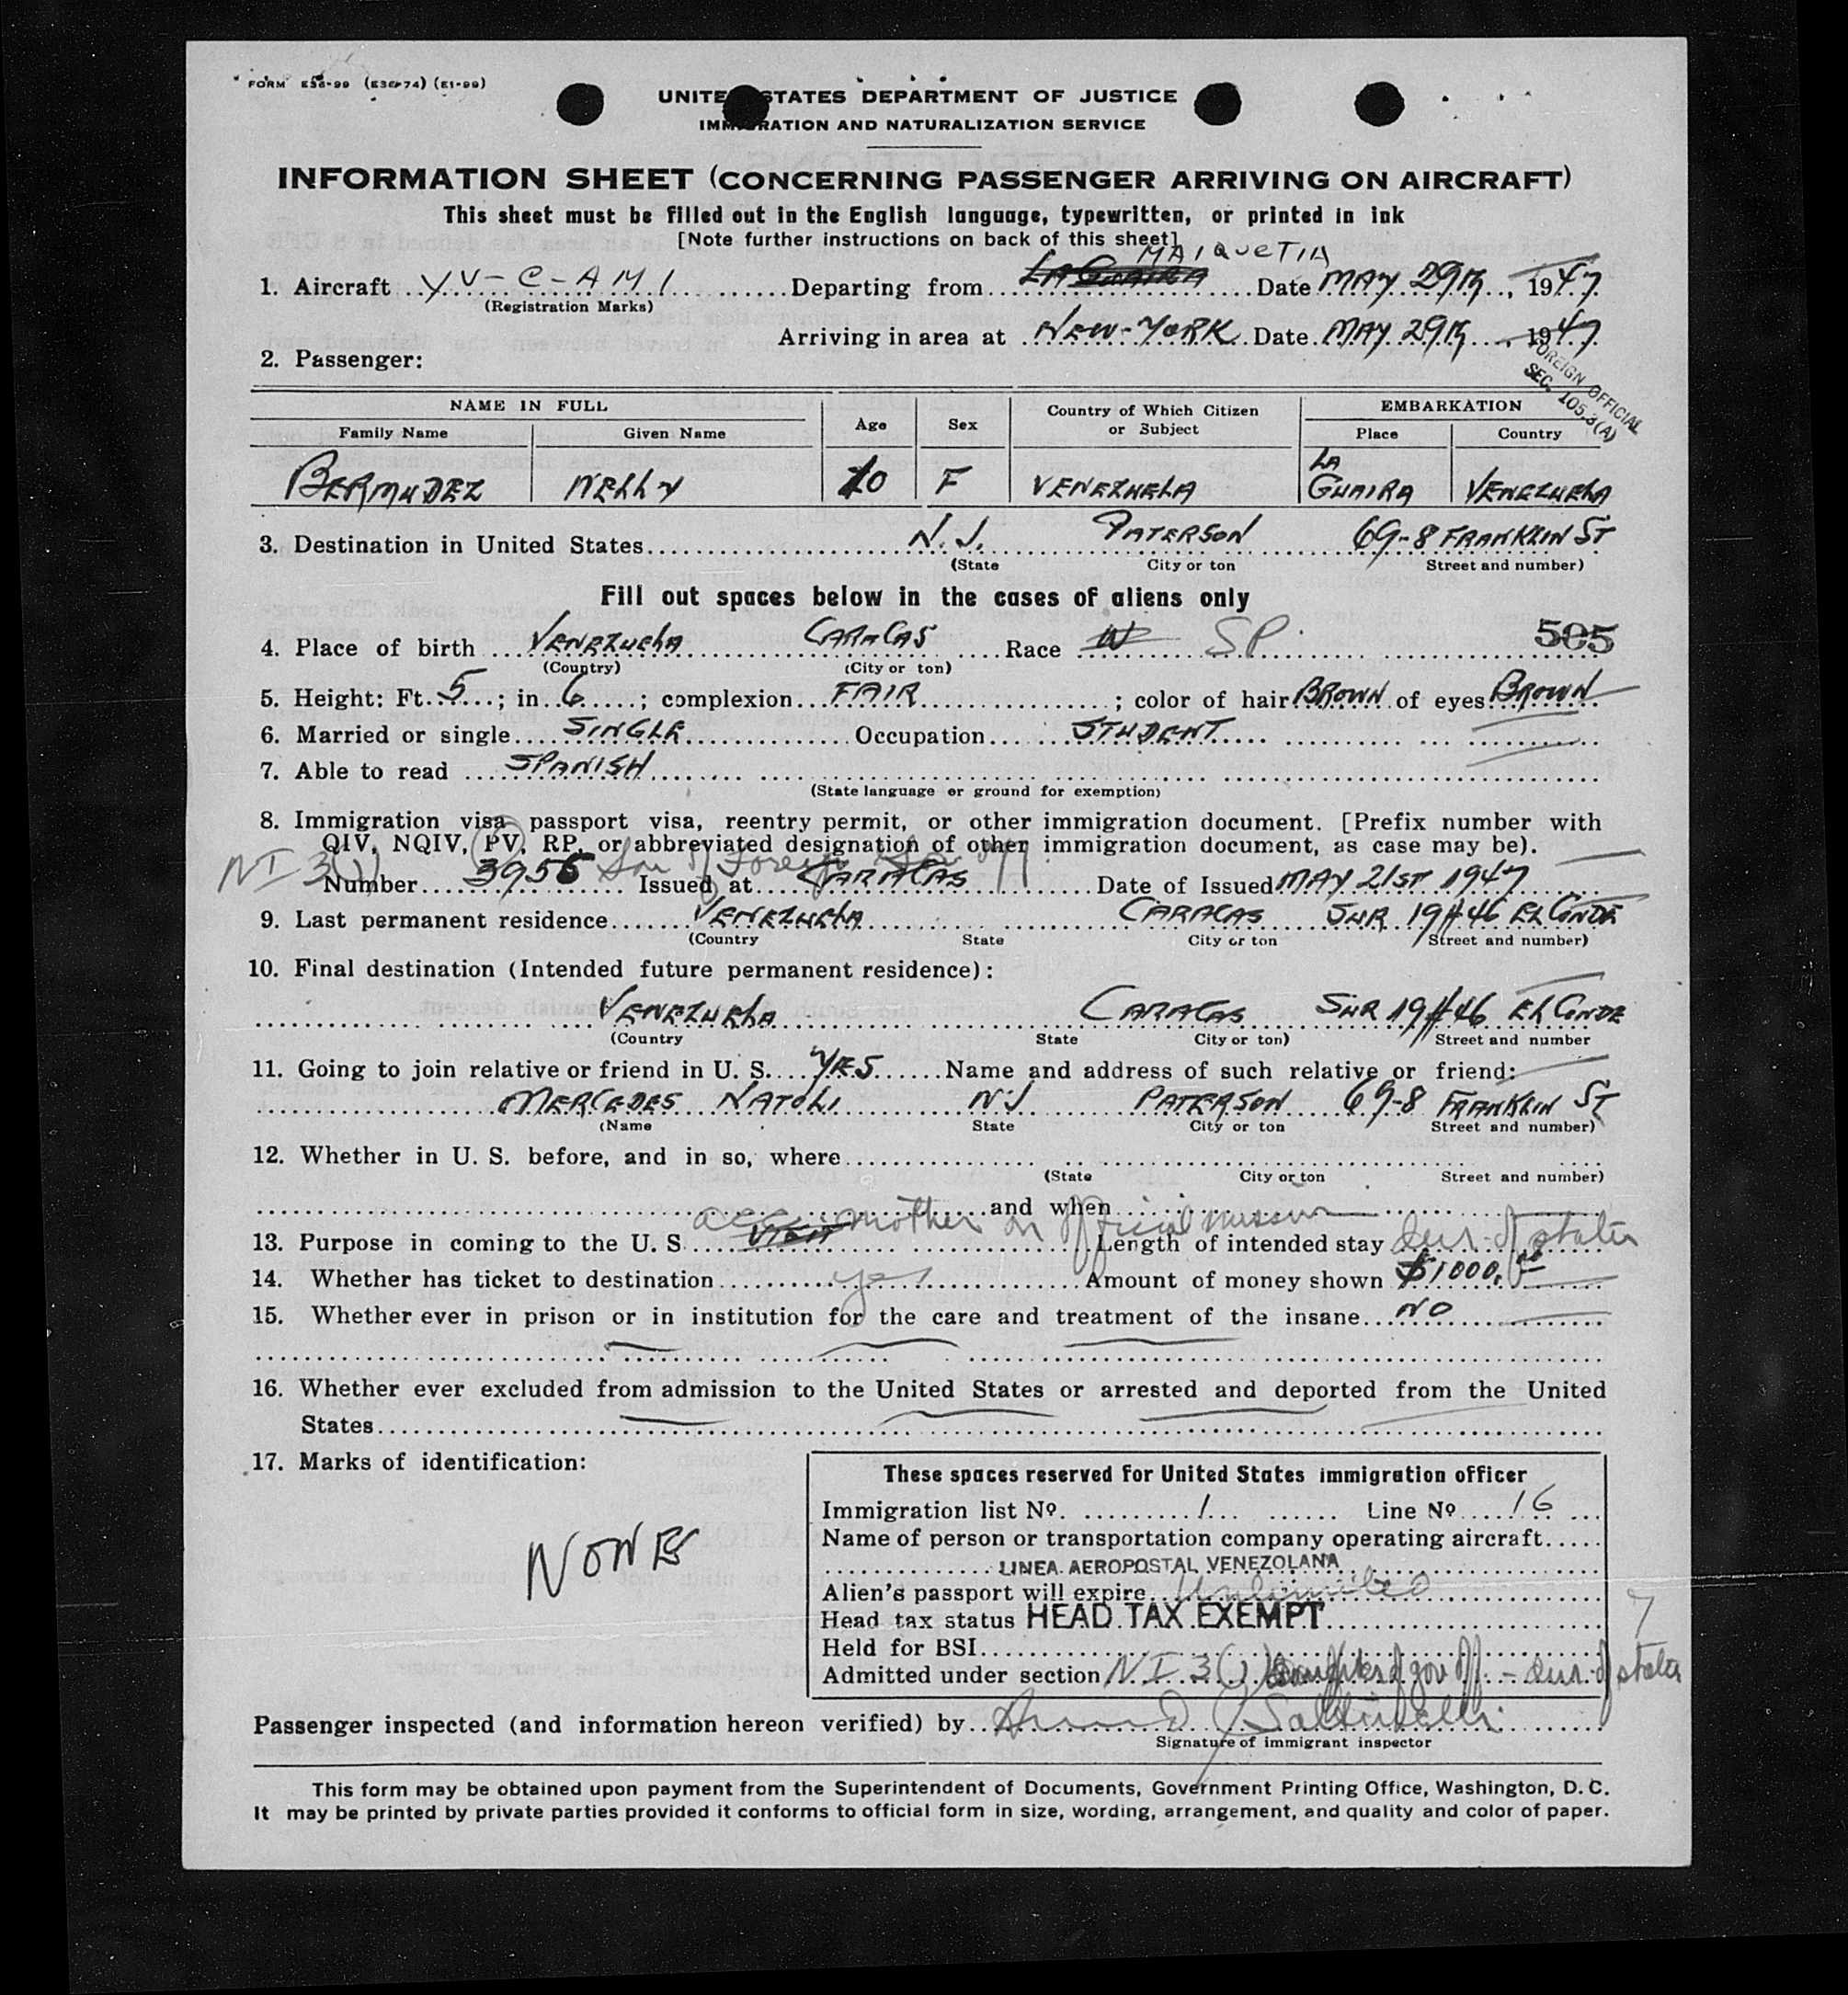 FORM E36-99 (E36-74) (E1-99)
UNITED STATES DEPARTMENT OF JUSTICE
IMMIGRATION AND NATURALIZATION SERVICE
INFORMATION SHEET (CONCERNING PASSENGER ARRIVING ON AIRCRAFT)
This sheet must be filled out in the English language, typewritten, or printed in ink
[Note further instructions on back of this sheet]
MAIQUETIA
1. Aircraft YV-C-AMI Departing from LA GUAIRA Date MAY 29th, 1947
(Registration Marks)
Arriving in area at NEW-YORK Date MAY 29th, 1947
2. Passenger:
FOREIGN OFFICIAL
SEC. 105.3(A)
NAME IN FULL Age Sex Country of Which Citizen or Subject EMBARKATION
Family Name Given Name Place Country
BERMUDEZ NELLY 10 F VENEZUELA LA GUAIRA VENEZUELA
3. Destination in United States N.J. PATERSON 69-8 FRANKLIN ST
(State City or ton Street and number)
Fill out spaces below in the cases of aliens only
4. Place of birth VENEZUELA CARACAS Race W SP 505
(Country) (City or ton)
5. Height: Ft. 5; in 6; complexion FAIR; color of hair BROWN of eyes BROWN
6. Married or single SINGLE Occupation STUDENT
7. Able to read SPANISH
(State language or ground for exemption)
8. Immigration visa, passport visa, reentry permit, or other immigration document. [Prefix number with
QIV, NQIV, PV, RP, or abbreviated designation of other immigration document, as case may be).
NI 3(1)
Number 3955 Issued at CARACAS Date of Issued MAY 21ST 1947
9. Last permanent residence VENEZUELA CARACAS SUR 19 #46 EL CONDE
(Country State City or ton Street and number)
10. Final destination (Intended future permanent residence):
VENEZUELA CARACAS SUR 19 #46 EL CONDE
(Country State City or ton) Street and number
11. Going to join relative or friend in U. S. YES Name and address of such relative or friend:
MERCEDES NATOLI NJ PATERSON 69-8 FRANKLIN ST
(Name State City or ton Street and number)
12. Whether in U. S. before, and in so, where
(State City or ton Street and number)
and when
acc. mother on official mission
13. Purpose in coming to the U. S. VISIT Length of intended stay dur. of status
14. Whether has ticket to destination yes Amount of money shown $1000.00
15. Whether ever in prison or in institution for the care and treatment of the insane NO
16. Whether ever excluded from admission to the United States or arrested and deported from the United
States
17. Marks of identification:
NONE
These spaces reserved for United States immigration officer
Immigration list Nº. 1 Line Nº 16
Name of person or transportation company operating aircraft
LINEA AEROPOSTAL VENEZOLANA
Alien's passport will expire Unlimited
Head tax status HEAD TAX EXEMPT
Held for BSI
Admitted under section NI 3(1) Daughter of gov off. - dur. of status
Passenger inspected (and information hereon verified) by
Signature of immigrant inspector
This form may be obtained upon payment from the Superintendent of Documents, Government Printing Office, Washington, D. C.
It may be printed by private parties provided it conforms to official form in size, wording, arrangement, and quality and color of paper.